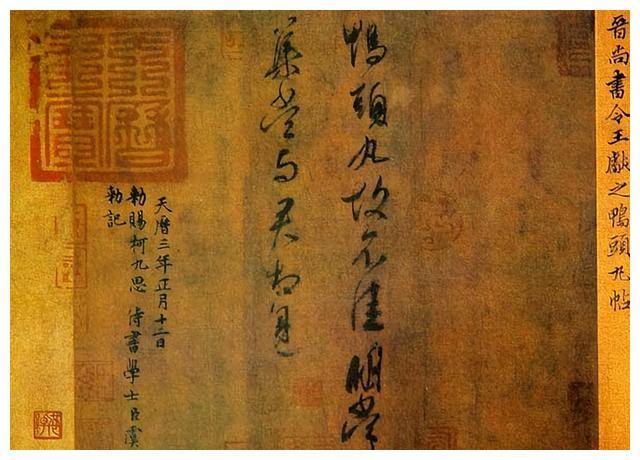 晉尚書令王獻之鴨頭丸帖
鴨頭丸故不佳明當
集當与君相見
天曆三年正月十二日
勑賜柯九思 侍書學士臣虞
勑記
天曆之寶